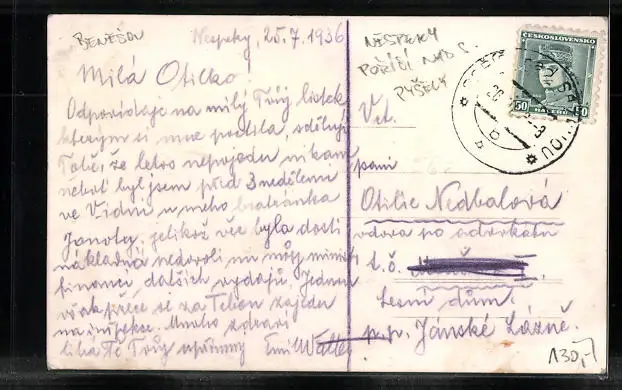 BENEŠOV
Nespeky, 25.7.1936
NESPEKY
POŘÍČÍ NAD S.
PYŠELY
Milá Otilko!
Odpovídaje na milý Tvůj lístek
kterým si mne poctila, sděluji
Tobě, že letos nepojedu nikam
neboť byl jsem před 3 nedělemi
ve Vídni u mého bratránka
Janoty, jelikož vše bylo dosti
nákladné nedovolí mi můj
finance dalších vydajů. Jednou
však přece se za Tebou zajedu
na inspekse. Mnoho zdraví
líbá Tě Tvůj upřímný Emil
ČESKOSLOVENSKO
50 HALÉŘŮ 50
SÁZAVOU
Vct.
paní
Otilie Nedbalová
vdova po advokátu
t. č.
Lesní dům.
p.p. Jánské Lázně.
130,-